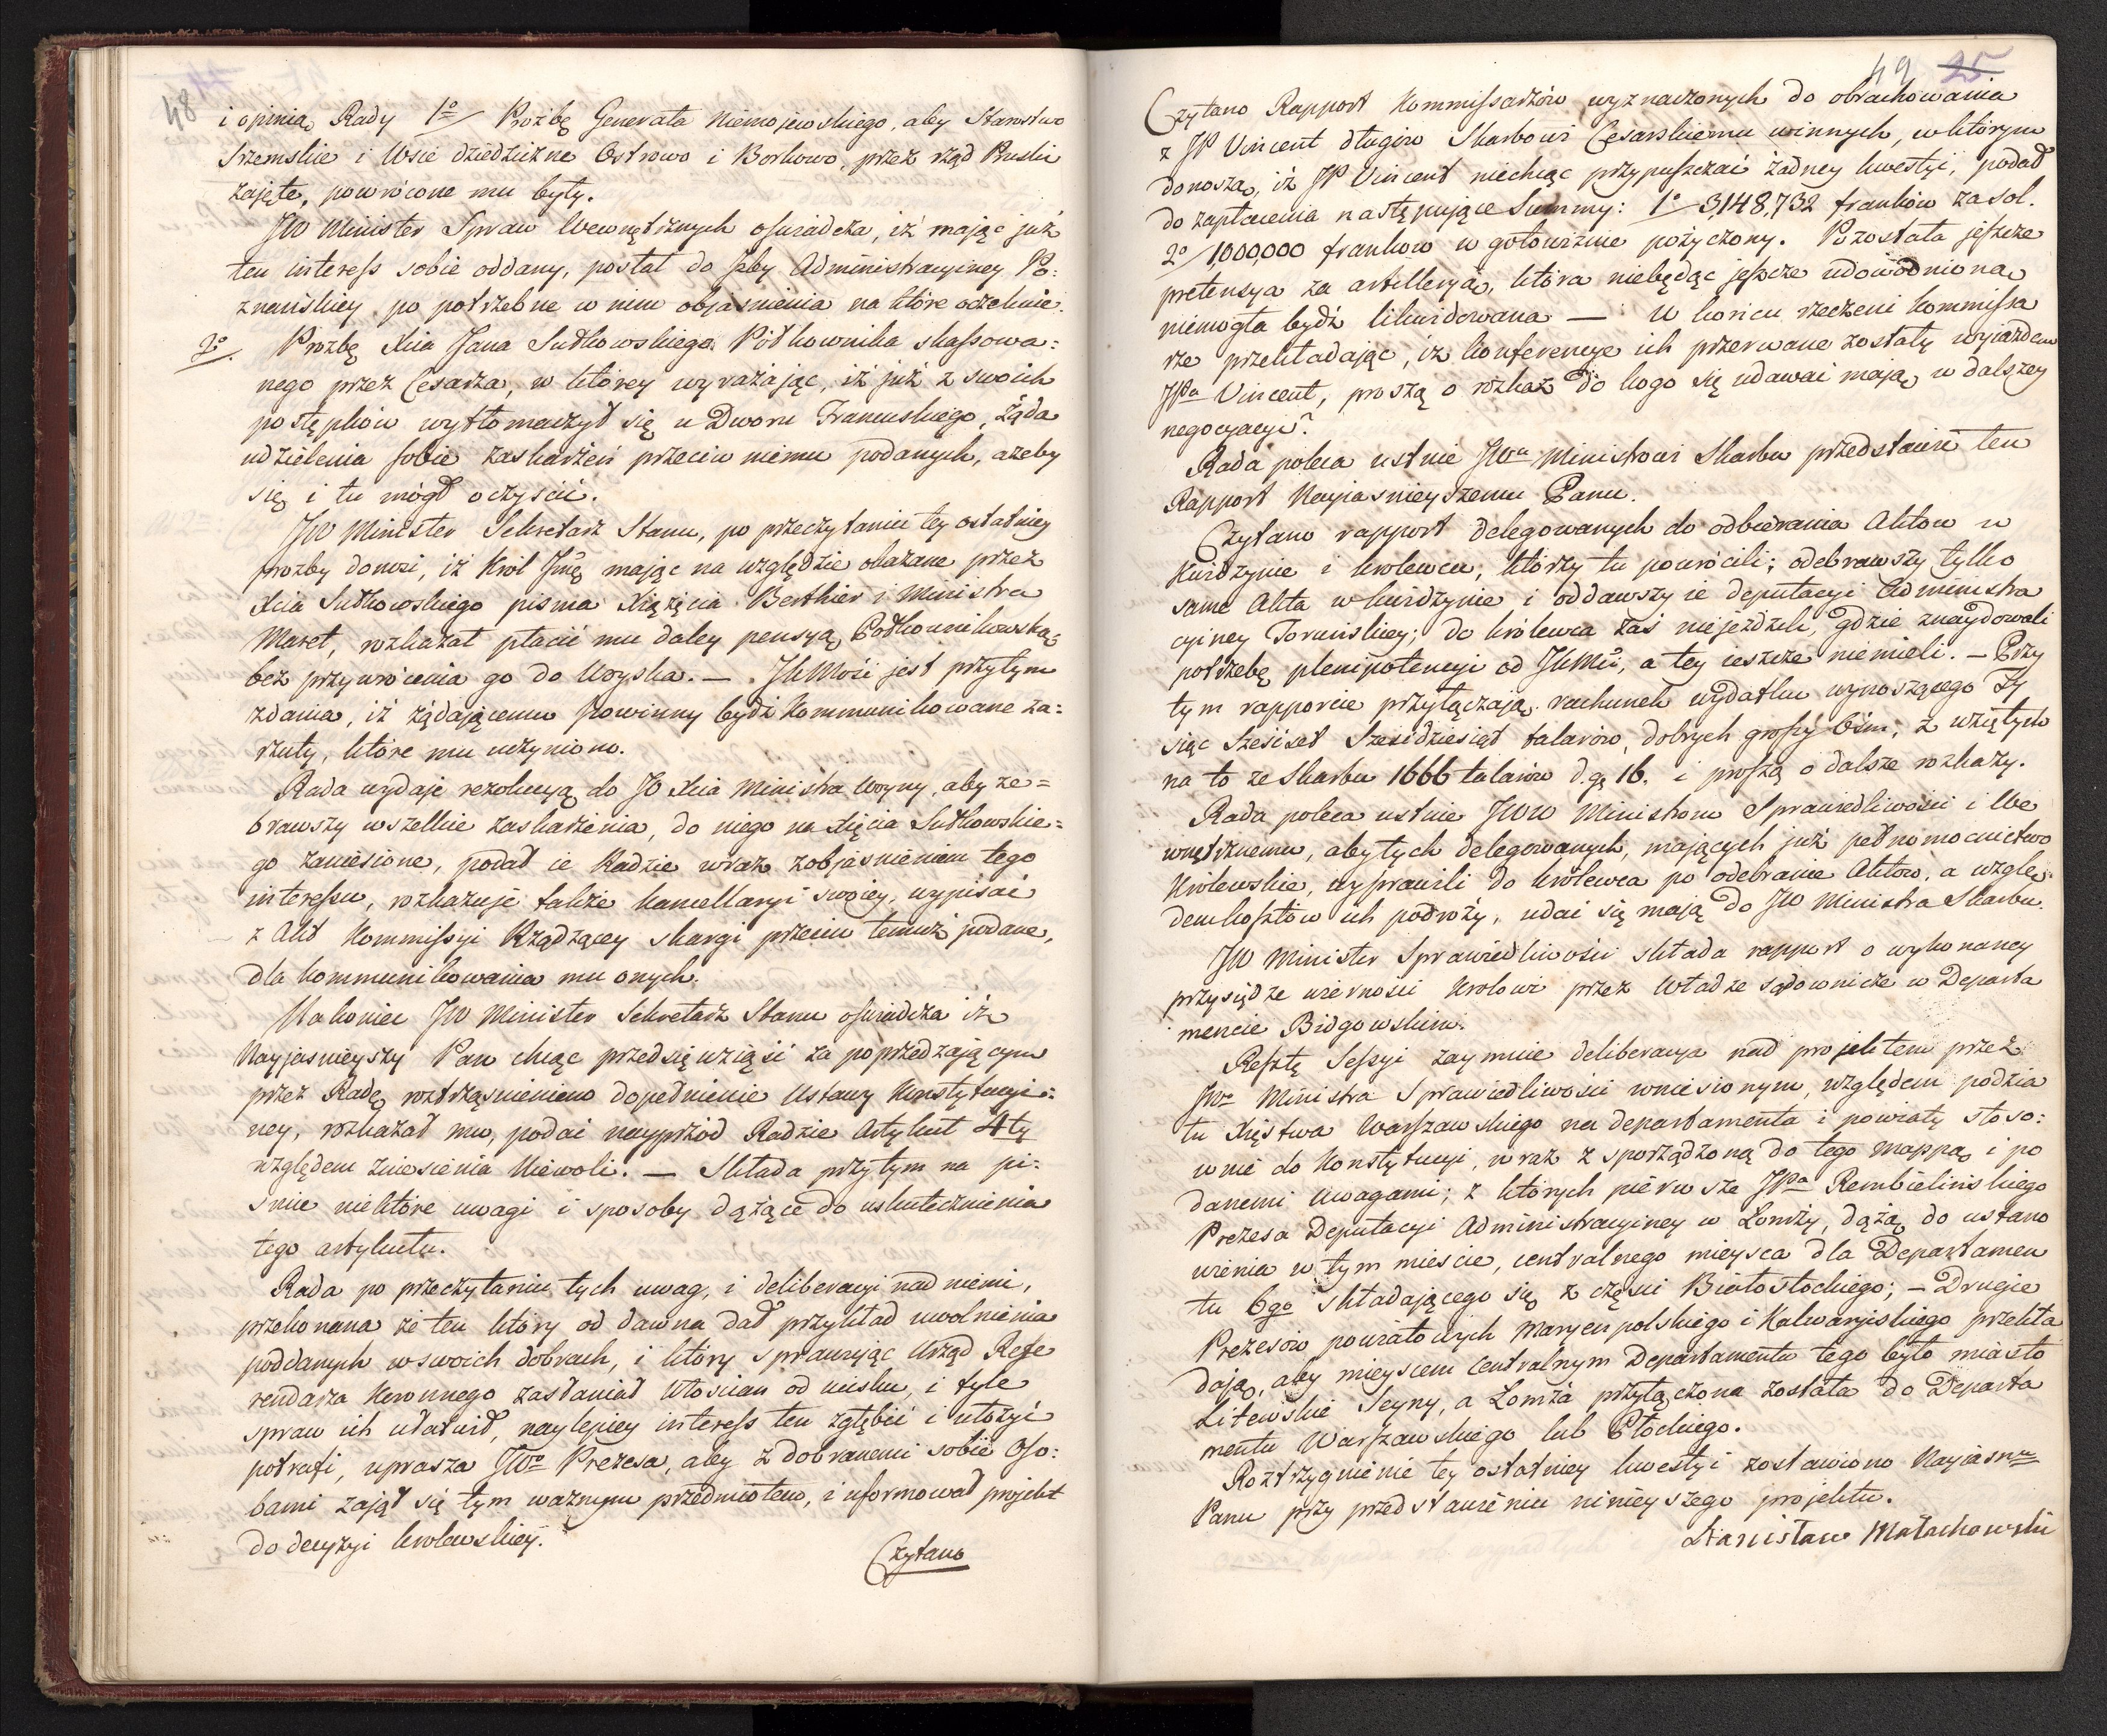 48
i opinią Rady 1º/ Prożbę Generała Niemojewskiego, aby Starostwo
Srzemskie i Wsie dziedziczne Ostrowo i Borkowo, przez rząd Pruski
zajęte, powrócone mu były.
JW Minister Spraw Wewnętrznych oświadcza, iż mając już
ten interess sobie oddany, posłał do Izby Administracyiney Po:
znańskiey po potrzebne w nim objaśnienia na które oczekuie.
2º/. Prozbę Xcia Jana Sułkowskiego Półkownika skassowa:
nego przez Cesarza, w którey wyrażając, iż już z swoich
postępków wytłomaczył się u Dworu Francuskiego, żąda
udzielenia sobie zaskarżeń przeciw niemu podanych, ażeby
się i tu mógł oczyścić.
JW Minister Sekretarz Stanu, po przeczytaniu tey ostatniey
prozby donosi, iż Król Jmć mając na względzie okazane przez
Xcia Sułkowskiego pisma Xiążęcia Berthier i Ministra
Maret, rozkazał płacić mu daley pensyą Półkownikowską,
bez przywrócenia go do Woyska. — JKMość jest przytym
zdania, iż żądającemu powinny bydź kommunikowane za:
rzuty, które mu uczyniono.
Rada wydaje rezolucyą do JO Xcia Ministra Woyny, aby ze=
brawszy wszelkie zaskarżenia, do niego na Xięcia Sułkowskie=
go zaniesione, podał ie Radzie wraz z objaśnieniem tego
interessu, rozkazuje także kancellaryi swoiey, wypisać
z Akt Kommissyi Rządzącey skargi przeciw temuż podane,
dla kommunikowania mu onych.
Nakoniec JW Minister Sekretarz Stanu oświadcza iż
Nayjasnieyszy Pan chcąc przedsięwziąść za poprzedzającym
przez Radę roztrząśnieniem dopełnienie Ustawy Konstytucyi:
ney, rozkazał mu, podać nayprzód Radzie Artykuł 4ty
względem zniesienia Niewoli. — Składa przytym na pi:
smie niektóre uwagi i sposoby dążące do uskutecznienia
tego artykułu.
Rada po przeczytaniu tych uwag, i deliberacyi nad niemi,
przekonana że ten który od dawna dał przykład uwolnienia
poddanych w swoich dobrach, i który sprawując Urząd Refe
rendarza Koronnego zasłaniał Włościan od ucisku, i tyle
spraw ich ułatwił, naylepiey interess ten zgłębić i ułożyć
potrafi, uprasza JWo Prezesa, aby z dobranemi sobie Oso:
bami zajął się tym ważnym przedmiotem, i uformował projekt
do decyzyi królewskiey.
Czytano
49 25
Czytano Rapport Kommissarzów wyznaczonych do obrachowania
z JP Vincent długów Skarbowi Cesarskiemu winnych, w którym
donoszą, iż JP Vincent niechcąc przypuszczać żadney kwestyi, podał
do zapłacenia następujące Summy: 1º/ 3,148,732 franków za sol.
2º/ 1,000,000 franków w gotowiźnie pożyczony. Pozostała jeszcze
pretensya za artylleryą, która niebędąc jeszcze udowodnioną
niemogła bydź likwidowana — W końcu rzeczeni kommissa
rze przekładając, iż konferencye ich przerwane zostały wyiazdem
JPa Vincent, proszą o rozkaz do kogo się udawać mają w dalszey
negocyacyi?
Rada poleca ustnie JWu Ministrowi Skarbu przedstawić ten
Rapport Nayiasnieyszemu Panu.
Czytano rapport delegowanych do odbierania Aktow w
Kwidzynie i Krolewcu, którzy tu powrócili; odebrawszy tylko
same Akta w kwidzynie i oddawszy ie deputacyi Administra
cyiney Toruńskiey; do królewca zaś niejeździli, gdzie znaydowali
potrzebę plenipotencyi od JKMci, a tey ieszcze niemieli. — Przy
tym rapporcie przyłączają rachunek wydatku wynoszącego Ty
siąc Sześćset Sześćdziesiąt talarów, dobrych groszy Ośm; z wziętych
na to ze skarbu 1666 talarów d.g. 16. i proszą o dalsze rozkazy.
Rada poleca ustnie JWW Ministrom Sprawiedliwości i We
wnętrznemu, aby tych delegowanych, mających już pełnomocnictwo
Królewskie, wyprawili do królewca po odebranie Aktow, a wzglę
dem kosztów ich podroży, udać się mają do JW Ministra Skarbu.
JW Minister Sprawiedliwości składa rapport o wykonaney
przysiędze wierności Krolowi przez Władze sądownicze w Departa
mencie Bidgowskim.
Resztę Sessyi zaymuie deliberacya nad projektem przez
JWo Ministra Sprawiedliwości wniesionym, względem podzia
łu Xięstwa Warszawskiego na departamenta i powiaty stoso:
wnie do Konstytucyi, wraz z sporządzoną do tego mappą i po
danemi uwagami; z których pierwsze JPa Rembielinskiego
Prezesa Deputacyi Administracyiney w Łomży, dążą do ustano
wienia w tym miescie, centralnego mieysca dla Departamen
tu 6go składającego się z części Białostockiego; — Drugie
Prezesów powiatowych Maryenpolskiego i Kalwaryiskiego przekła
dają, aby mieyscem Centralnym Departamentu tego było miasto
Litewskie Seyny, a Łomża przyłączona została do Departa
mentu Warszawskiego lub Płockiego.
Roztrzygnienie tey ostatniey kwestyi zostawiono Nayiasnmu
Panu przy przedstawieniu ninieyszego projektu.
Stanisław Małachowski